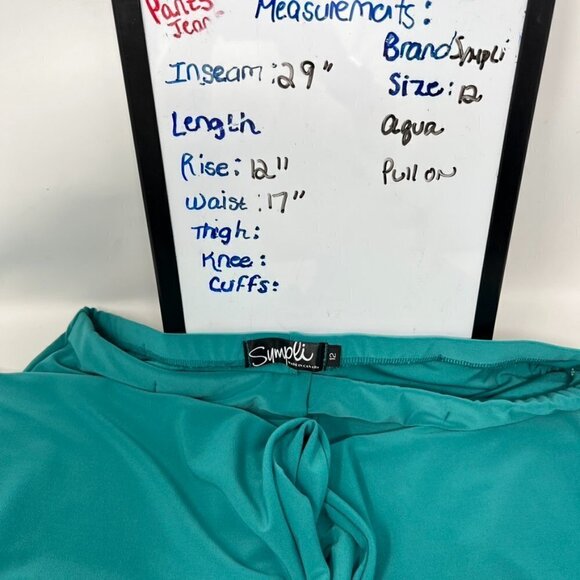 Pants
Jean
Measurements:
Inseam: 29"
Length
Rise: 12"
Waist: 17"
Thigh:
Knee:
Cuffs:
Brand Sympli
Size: 12
aqua
Pull on
Sympli
MADE IN CANADA
12